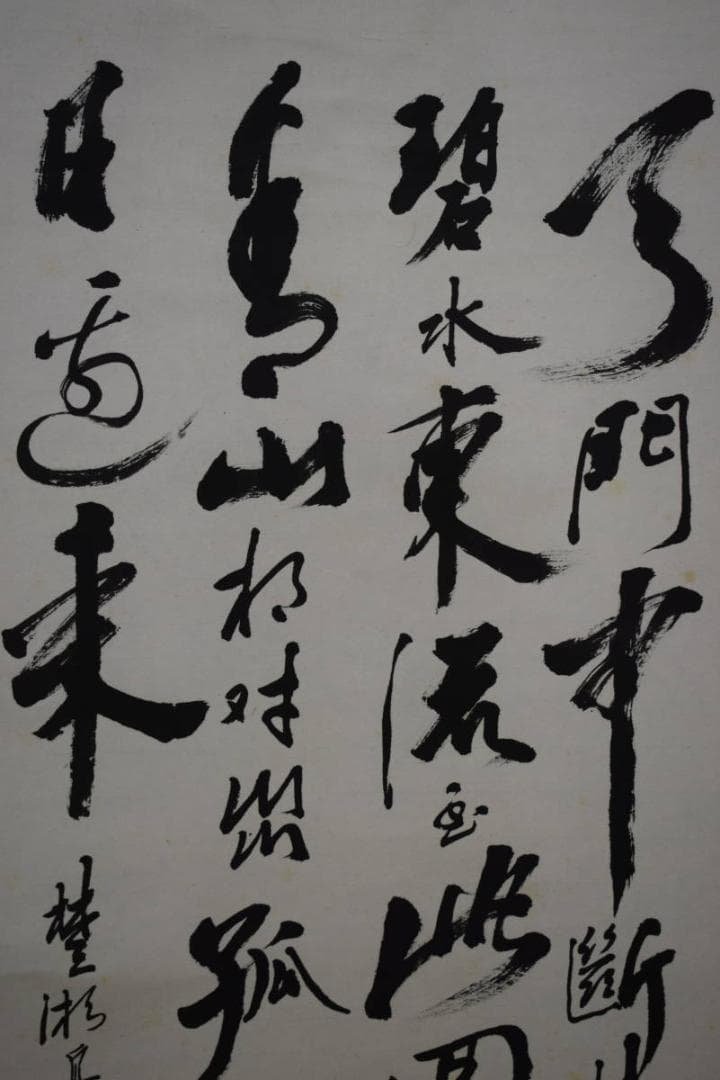 天門中斷
碧水東流至此回
青山相对出孤
日邊来
楚湘